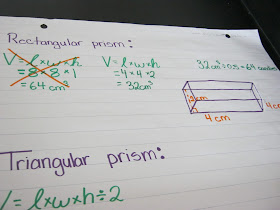 Rectangular prism:
V = l×w×h
= 8×8×1
= 64 cm³
V = l×w×h
= 4×4×2
= 32cm³
32cm³ ÷ 0.5 = 64
2cm
4cm
4cm
Triangular prism:
V = l×w×h÷2